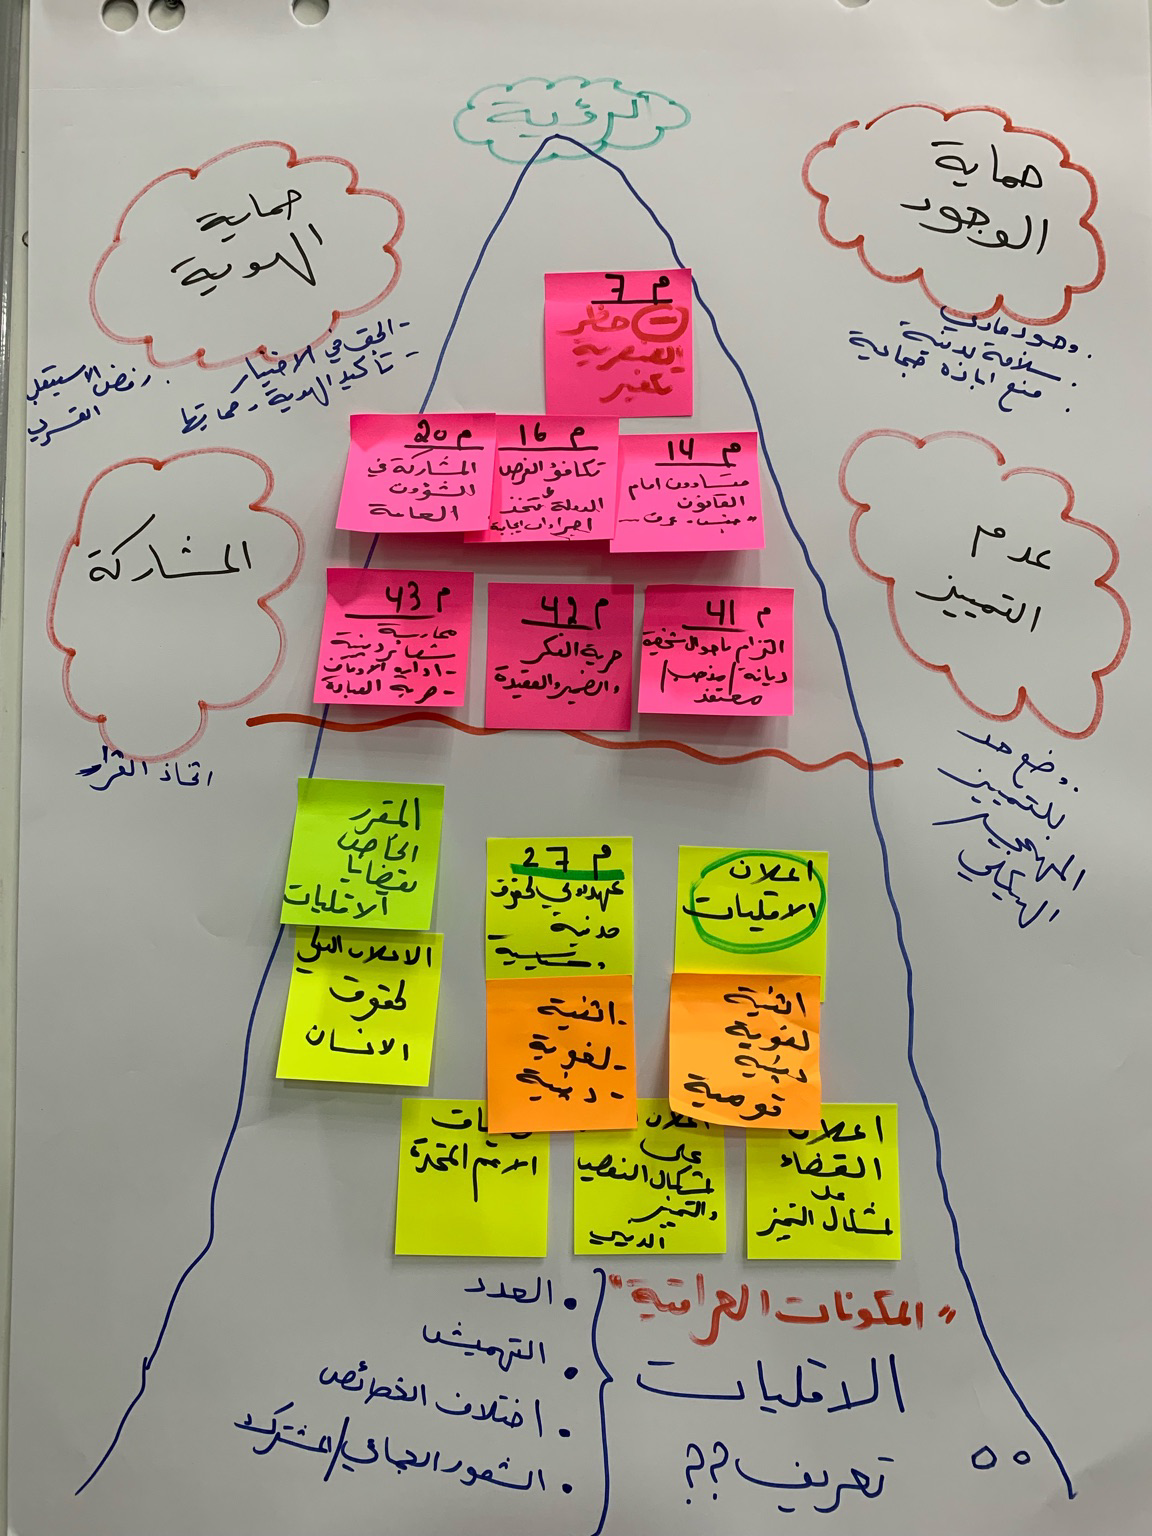 الرؤية
حماية
الوجود
. وجود مادي
. سلامة بدنية
. منع ابادة جماعية
حماية
الهوية
- الحق في الاختيار
- تأكيد الهوية وحمايتها
. رفض الاستيعاب
القسري
م 7
حظر
العنصرية
تكفير
م 14
متساوون امام
القانون
"جنس - عرق --
م 16
تكافؤ الفرص
الدولة تتخذ
اجراءات ايجابية
م 20
المشاركة في
الشؤون
العامة
عدم
التمييز
المشاركة
م 41
التزام باحوال شخصية
ديانة / مذهب /
معتقد
م 42
حرية الفكر
والضمير والعقيدة
م 43
ممارسة
شعائر دينية
- ادارة الاوقاف
- حرية العبادة
اتخاذ القرار
. وضع حد
للتمييز
المنهجي
الهيكلي
اعلان
الاقليات
م 27
عهد دولي لحقوق
مدنية
وسياسية
المقرر
الخاص
بقضايا
الاقليات
الاعلان العالمي
لحقوق
الانسان
اثنية
لغوية
دينية
قومية
- اثنية
- لغوية
- دينية
اعلان
القضاء
على
اشكال التميز
اعلان
على
اشكال التعصب
والتميز
الديني
الامم المتحدة
"المكونات العراقية"
الاقليات
تعريف ??
• العدد
• التهميش
• اختلاف الخصائص
• الشعور الجماعي/المشترك